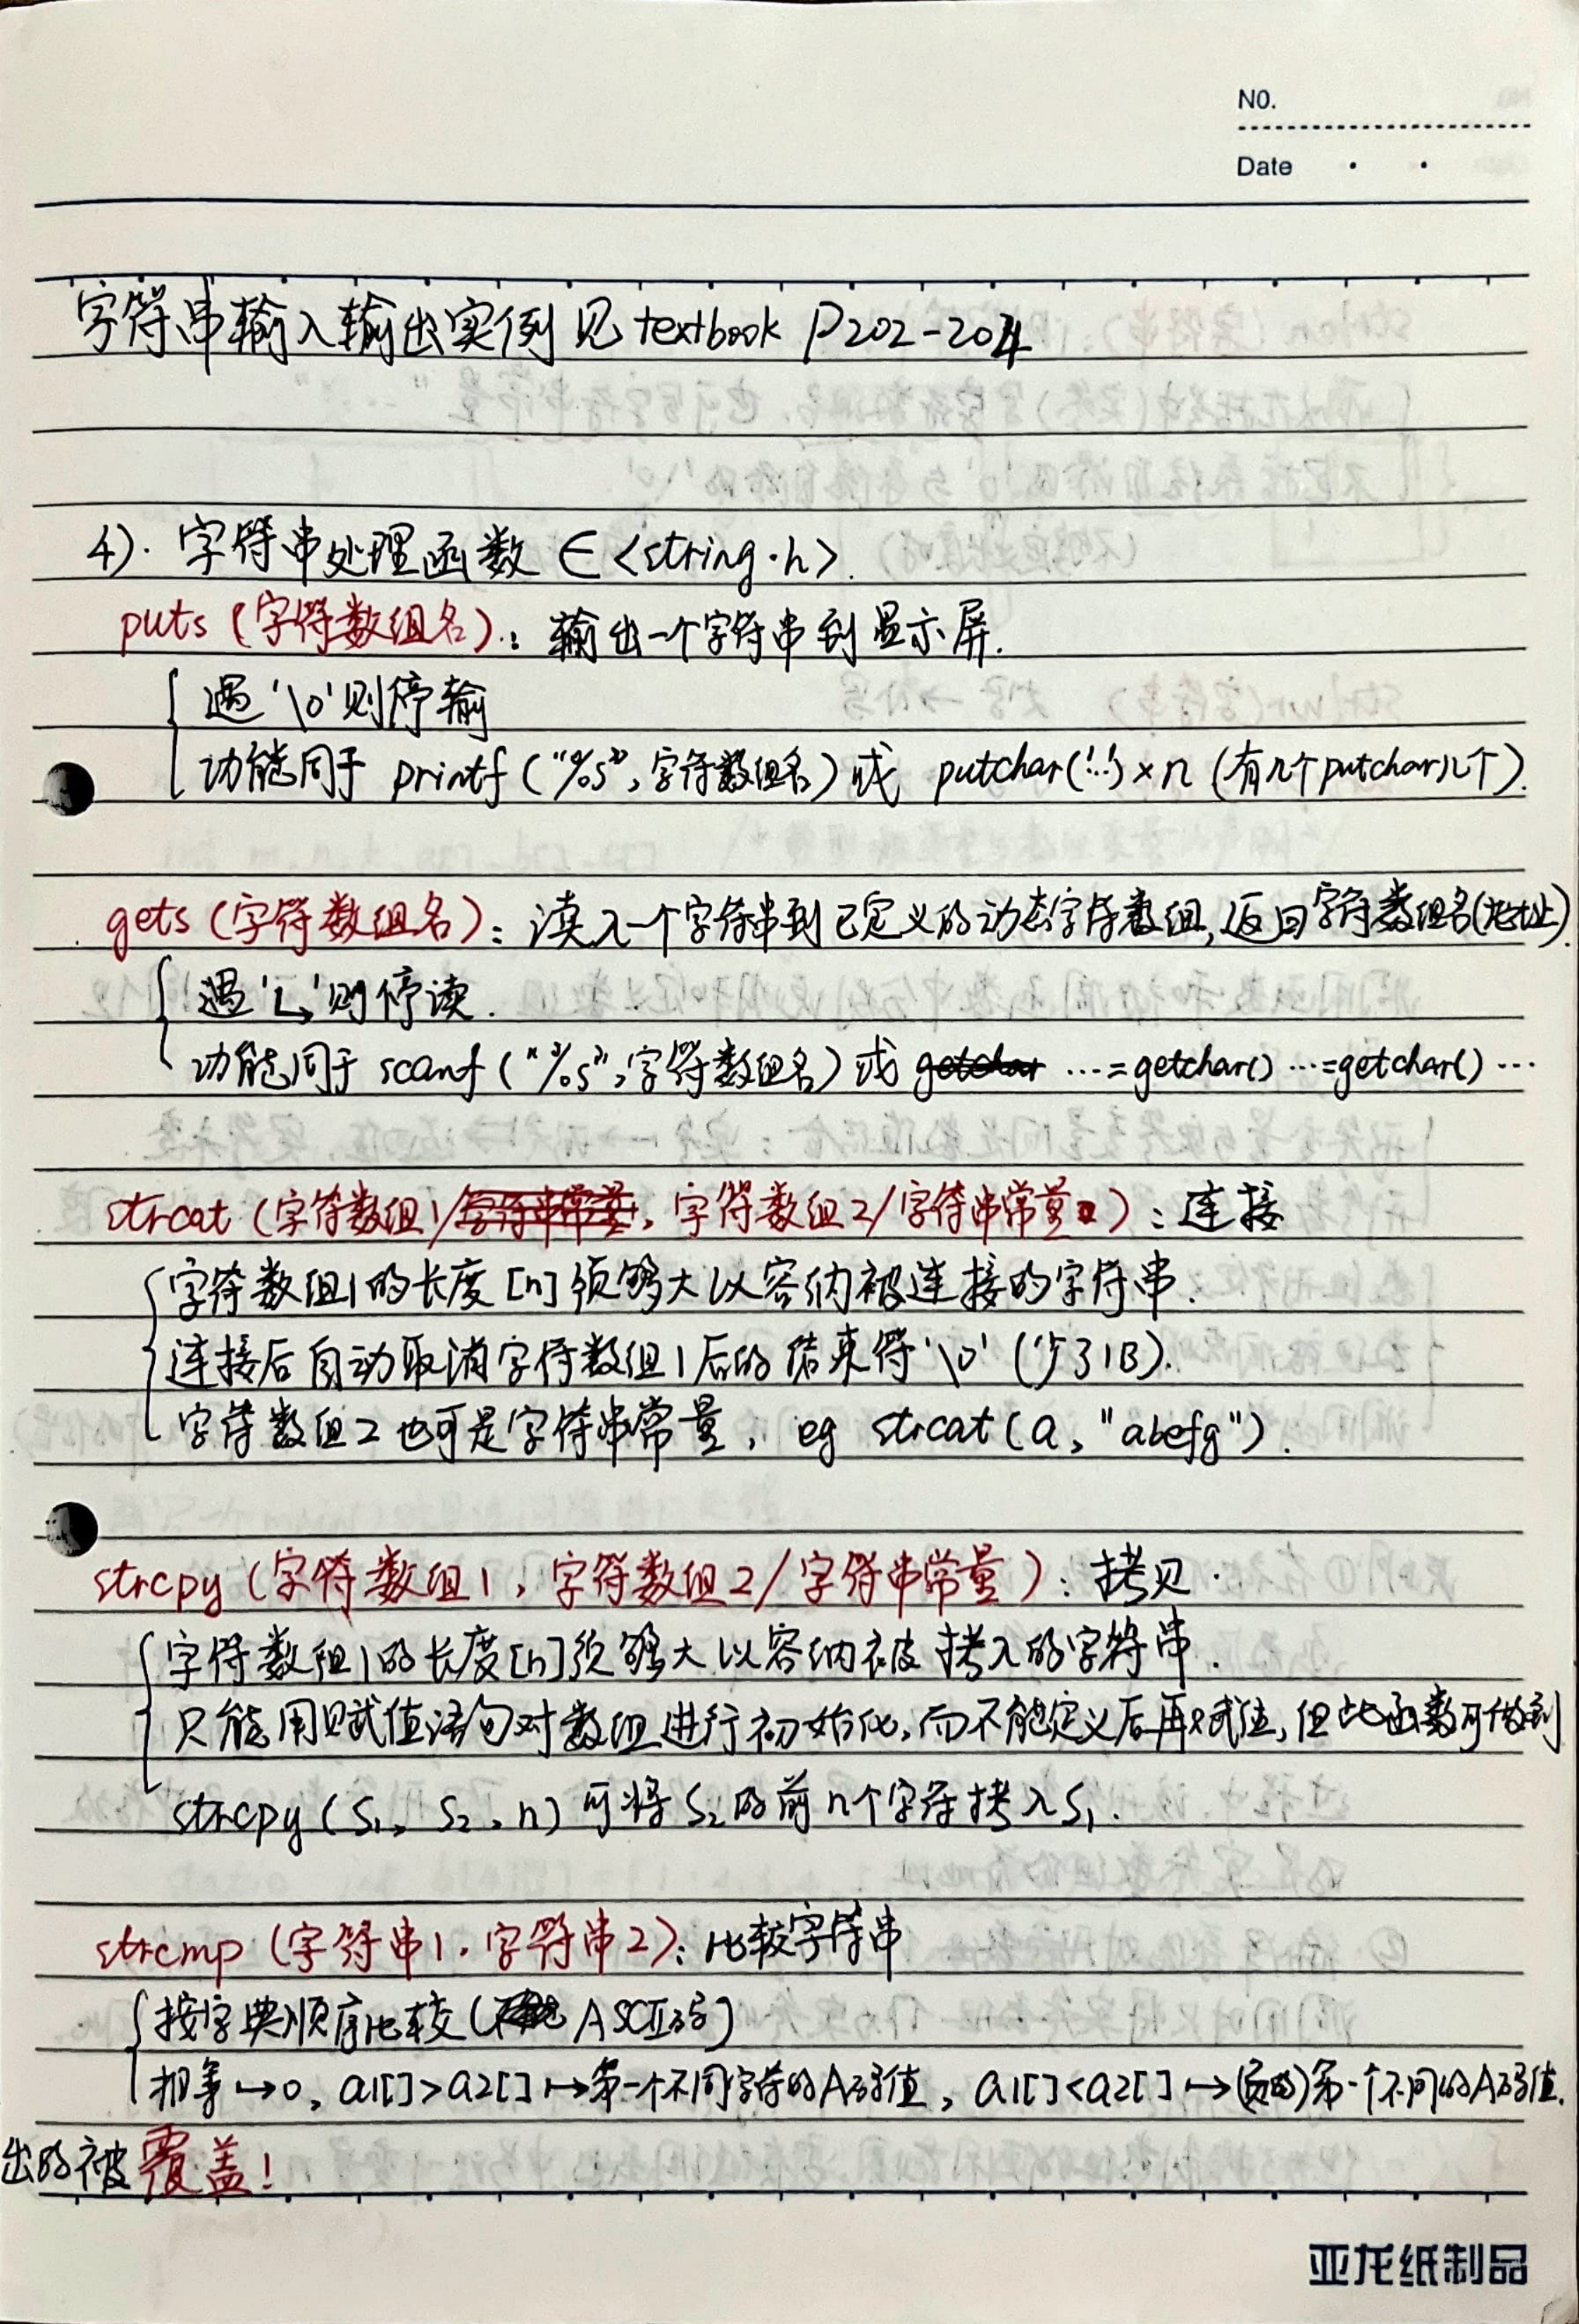 NO.
Date
字符串输入输出实例见 textbook P202-204
4). 字符串处理函数 ∈ <string.h>.
puts (字符数组名): 输出一个字符串到显示屏.
遇'\0'则停输
功能同于 printf ("%s", 字符数组名) 或 putchar('..') × n (有几个putchar几个).
gets (字符数组名): 读入一个字符串到已定义的动态字符数组, 返回字符数组名(地址).
遇'↳'则停读.
功能同于 scanf ("%s", 字符数组名) 或 getchar …=getchar() …=getchar() …
strcat (字符数组1/字符串常量, 字符数组2/字符串常量): 连接
字符数组1的长度[n]须够大以容纳被连接的字符串.
连接后自动取消字符数组1后的结束符'\0' (少了1B).
字符数组2也可是字符串常量, eg strcat (a, "abefg").
strcpy (字符数组1, 字符数组2/字符串常量): 拷贝.
字符数组1的长度[n]须够大以容纳被拷入的字符串.
只能用赋值语句对数组进行初始化, 而不能定义后再赋值, 但此函数可做到
strcpy (S₁, S₂, n) 可将S₂的前n个字符拷入S₁.
strcmp (字符串1, 字符串2): 比较字符串
按字典顺序比较 (ASCII码)
相等↦0, a1[]>a2[]↦第一个不同字符的A码值, a1[]<a2[]↦(负的)第一个不同的A码值.
出的被覆盖!
亚龙纸制品